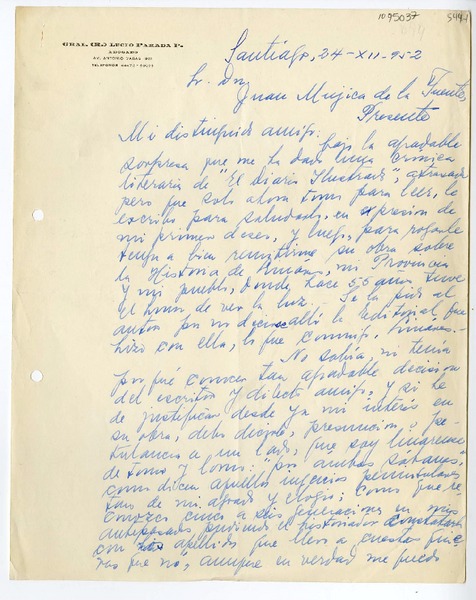 1095037
GRAL. (R.) LUCIO PARADA P.
ABOGADO
Santiago, 24-XII-952
Sr. Dn.
Juan Mujica de la Fuente
Presente
Mi distinguido amigo:
bajo la agradable
sorpresa que me ha dado una crónica
literaria de "El Diario Ilustrado", atrasada
pero que solo ahora tomo para leer, le
escribo para saludarlo, en expresión de
mi primer deseo, y luego, para rogarle
tenga a bien remitirme su obra sobre
la Historia de Linares, mi Provincia
y mi pueblo, donde, hace 56 años, tuve
el honor de ver la luz. Se la pido al
autor por no decirse allí la Editorial que
hizo con ella, lo que conmigo, Linares.
No sabía, ni tenía
por qué conocer tan agradable decisión
del escritor y dilecto amigo, y si he
de justificar desde ya mi interés en
su obra, debo decirle, presunción y pe-
tulancia a un lado, que soy linarense
de tomo y lomo: "por ambas sábanas",
como dicen aquellos
de mi agrado y elogio; como que re-
conozco cinco a seis generaciones en mis
antepasados pudiendo el historiador constatarlo
con apellidos que llevo a cuestas
que no, aunque en verdad me puedo